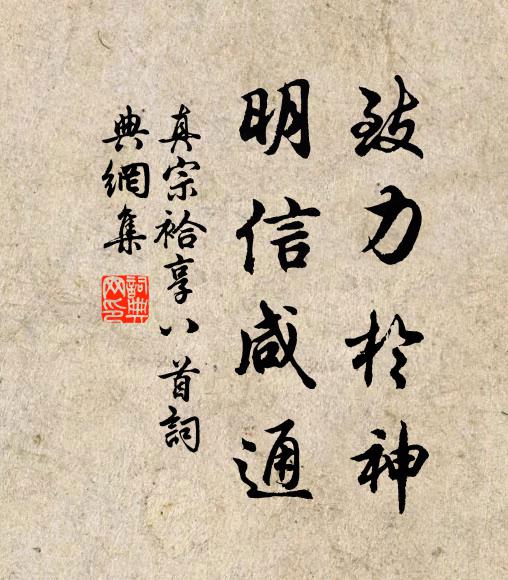 致力於神
明信咸通
真宗祫享八首詞
典網集
詞典網印